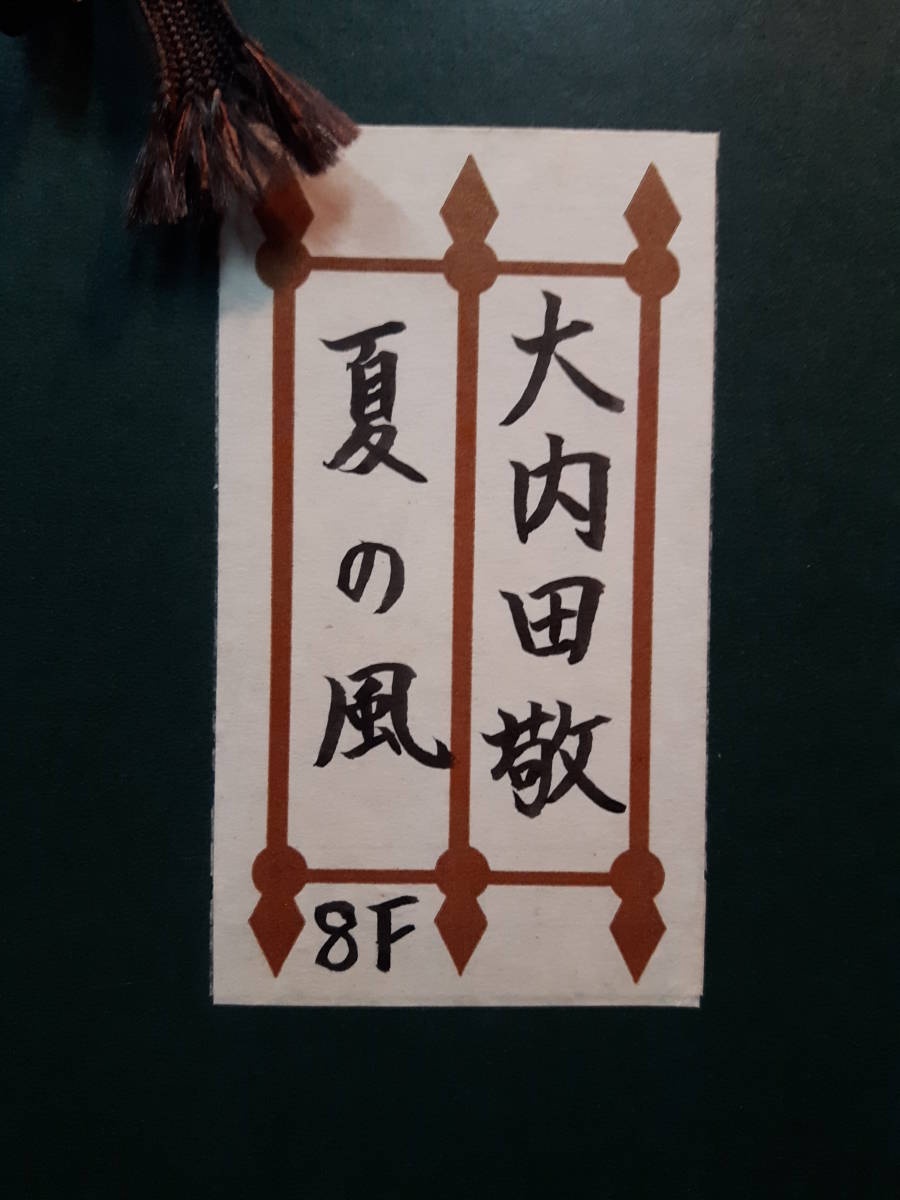 大内田敬
夏の風
8F